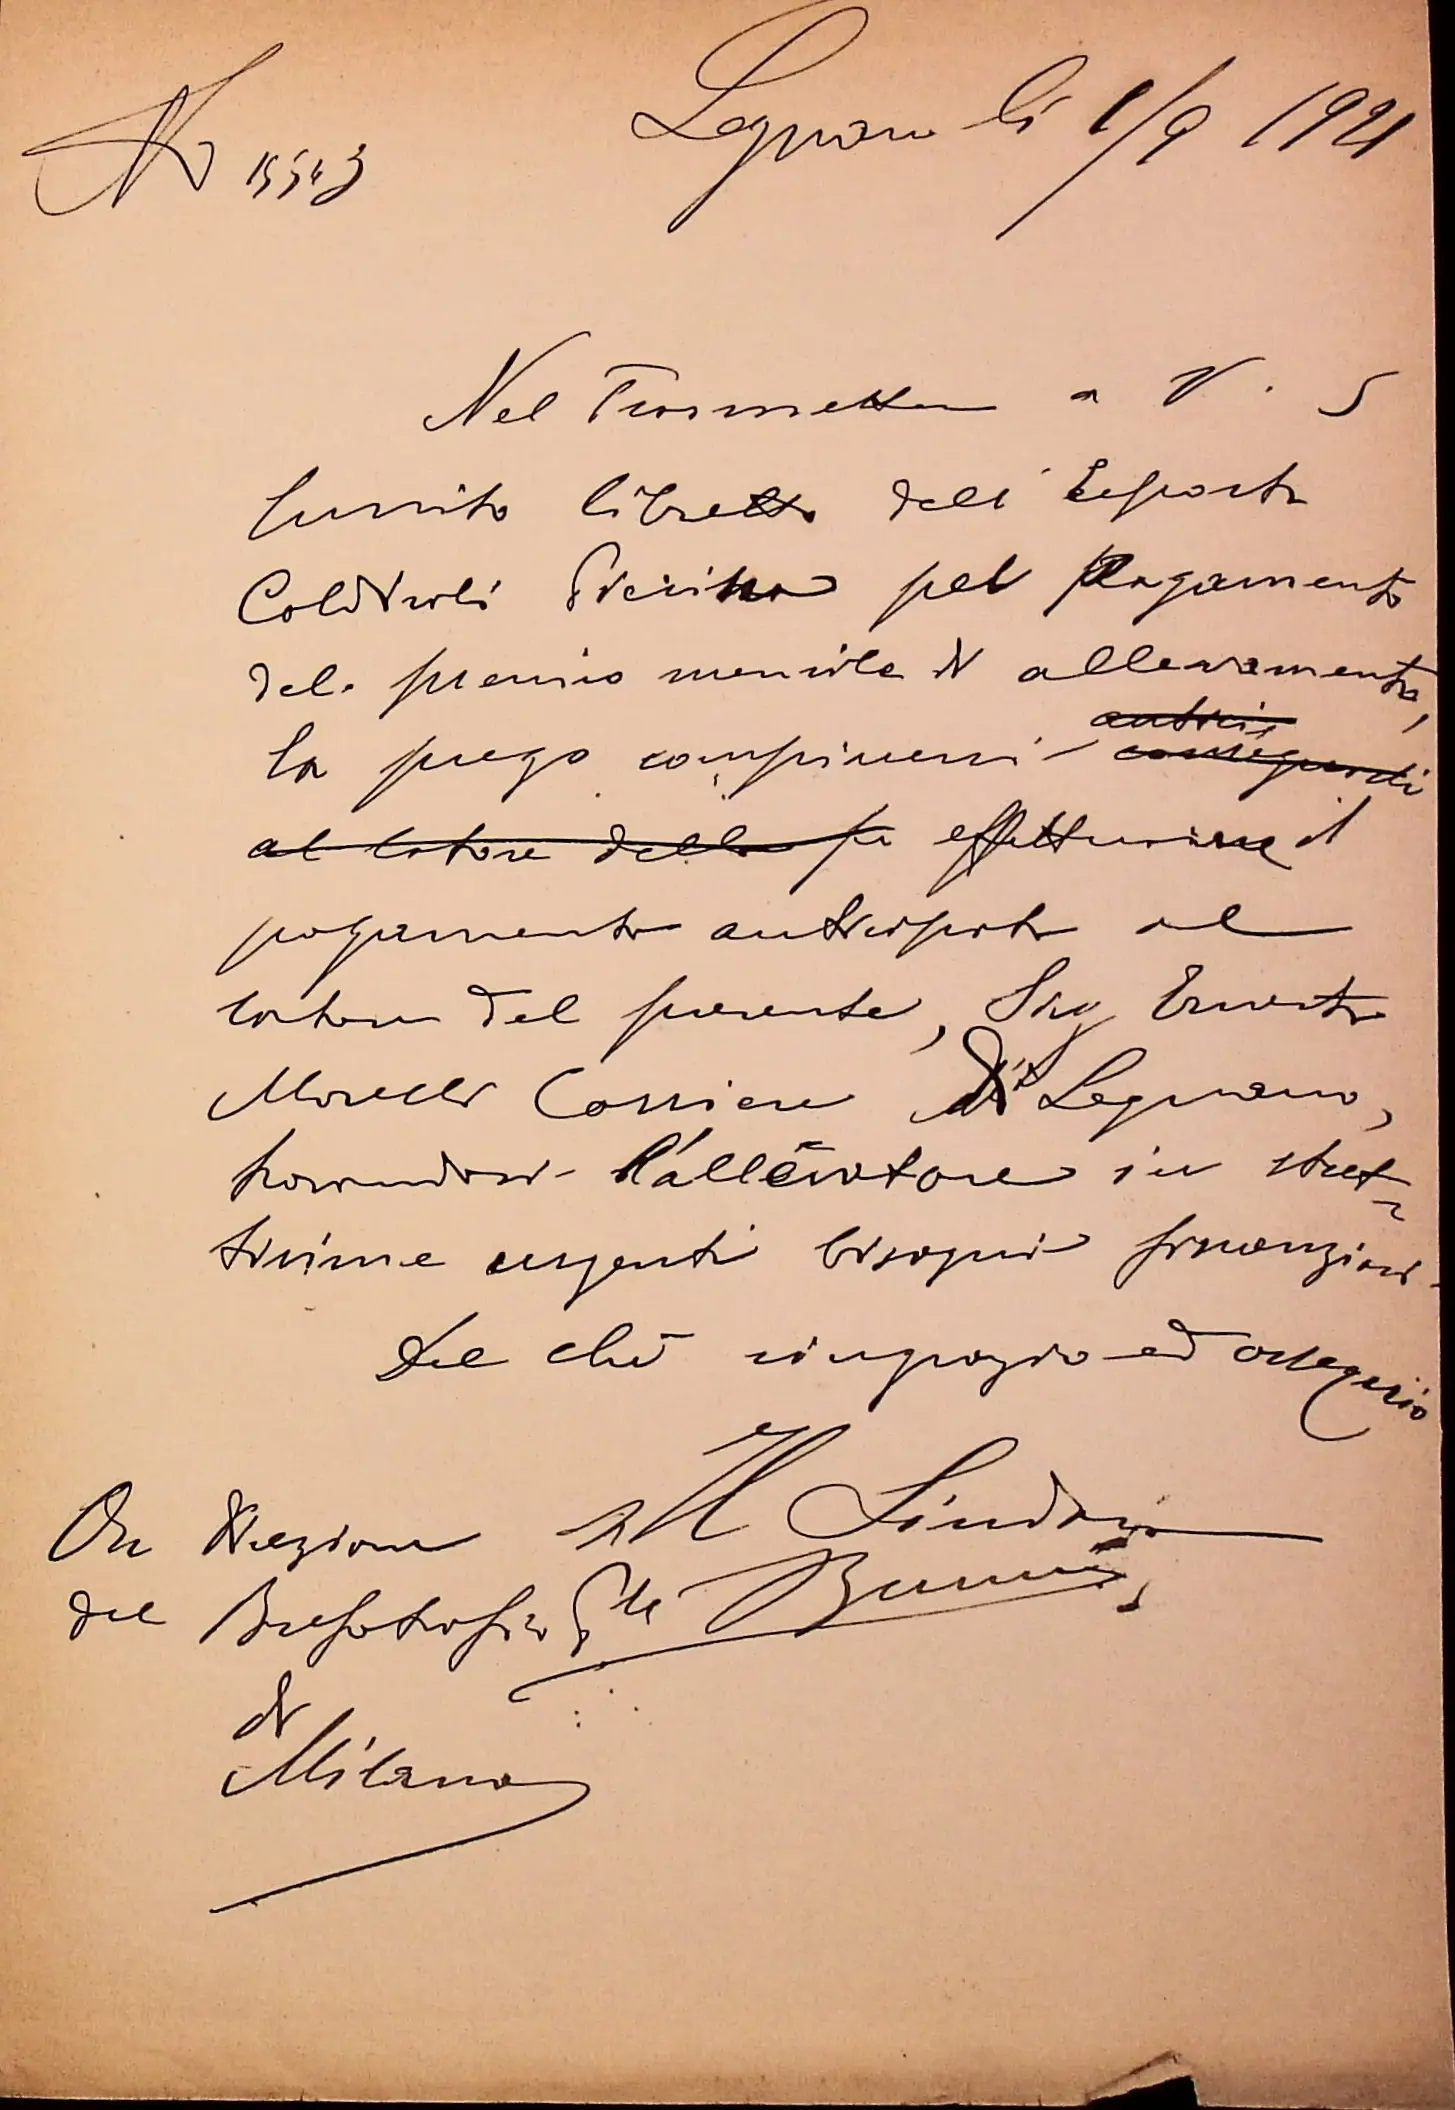 No 15543
Legnano li 1/9 1921
Nel Trasmettere a V. S
l'unito libretto dell'Esposta
pel Pagamento
del premio mensile di allevamento,
la prego compiacersi
al latore della effettuare il
pagamento anticipato al
latore del presente, Sig Ernesto
Morelli Corriere di Legnano,
trovandosi l'allevatore in stret-
tissime urgenti bisogni finanziari.
Del chè ringrazio ed ossequio
Il Sindaco
On Direzione
del Brefotrofio Ple
di
Milano